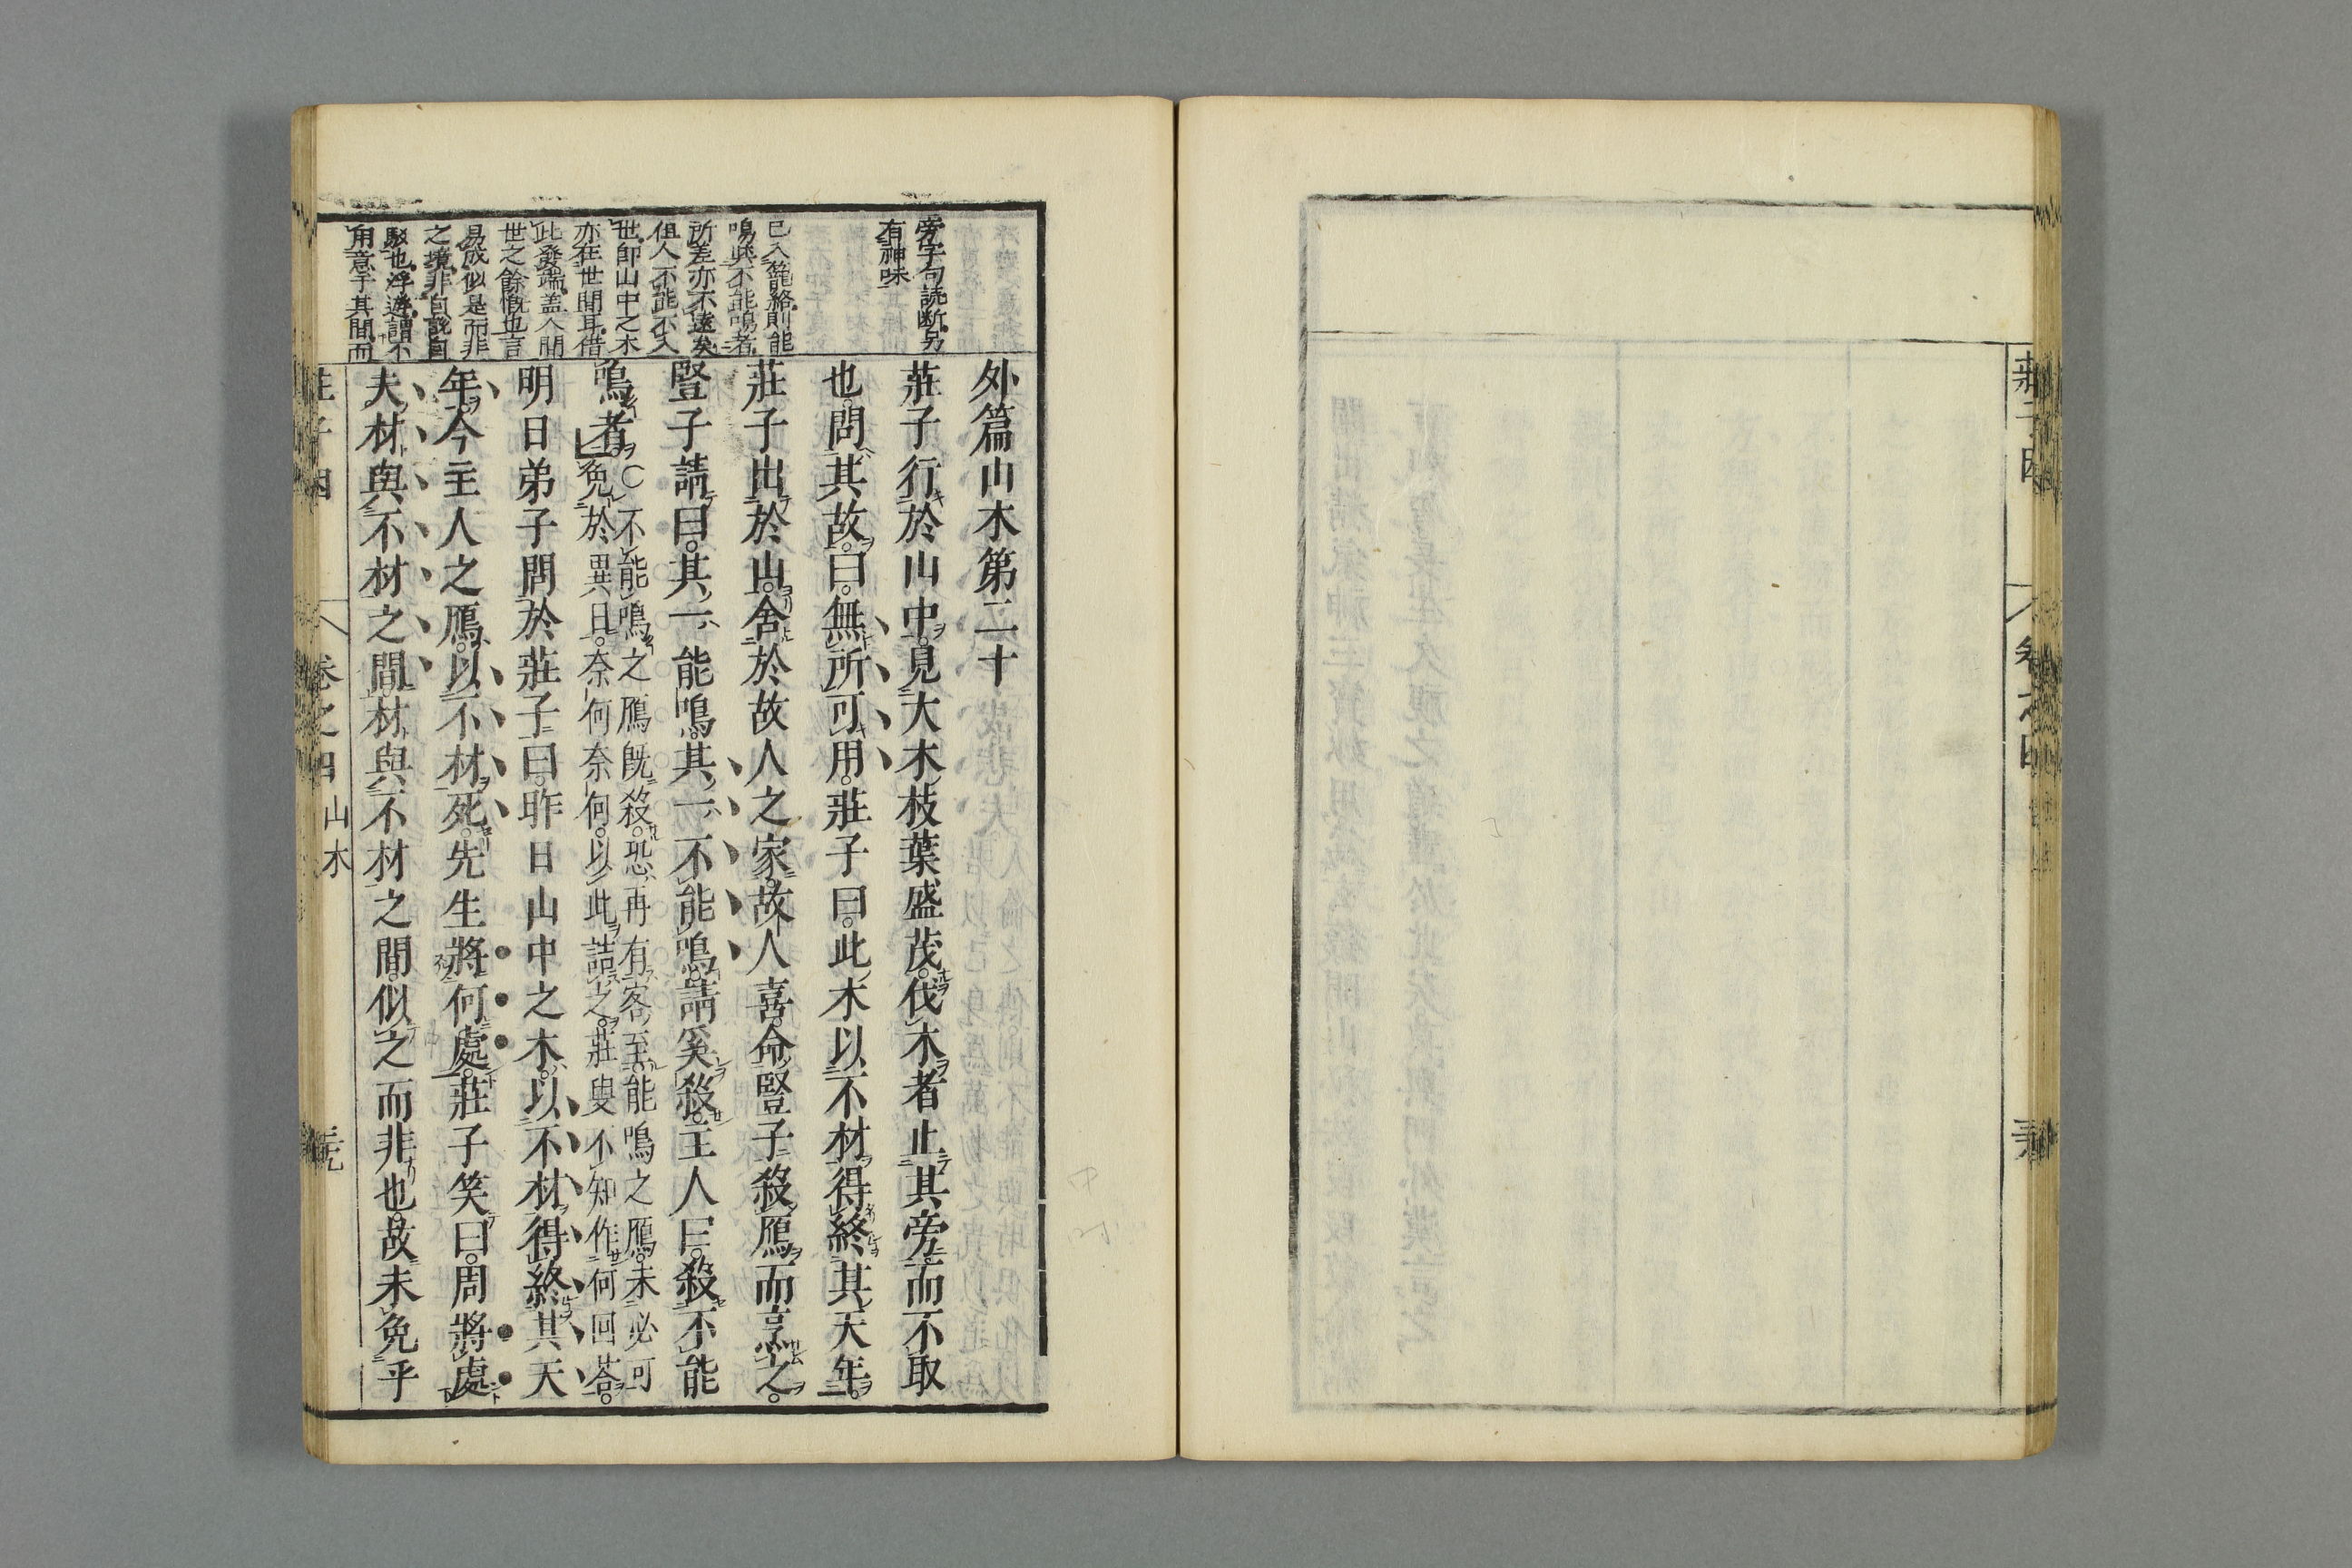 莊子因
卷之四
外篇山木第二十
莊子行於山中見大木枝葉盛茂伐木者止其旁而不取
也問其故曰無所可用莊子曰此木以不材得終其天年
莊子出於山舍於故人之家故人喜命豎子殺鴈而烹之
豎子請曰其一能鳴其一不能鳴請奚殺主人曰殺不能
鳴者○不能鳴之鴈既殺恐再有客至能鳴之鴈未必可
免於異日奈何奈何以此詰之莊叟不知作何回荅
明日弟子問於莊子曰昨日山中之木以不材得終其天
年今主人之鴈以不材死先生將何處莊子笑曰周將處
夫材與不材之間材與不材之間似之而非也故未免乎
旁字句読断另
有神味
已入籠絡則能
鳴與不能鳴者
所差亦不遠矣
但人不能不入
世即山中之木
亦在世間耳借
此發端盖人間
世之餘慨也言
易成似是而非
之境非自說自
駁也浮遊謂不
用意于其間而
莊子因
卷之四 山木